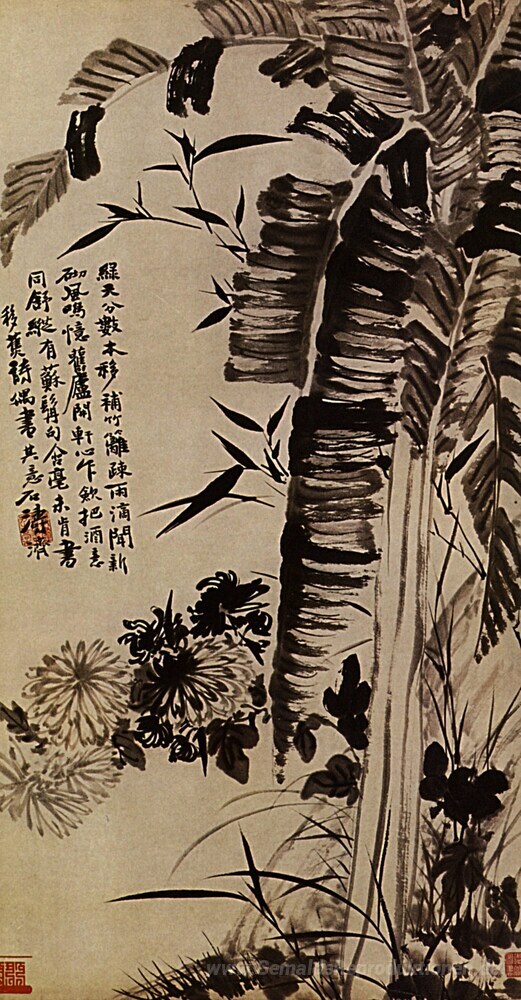 綠天分數本移補竹籬疎雨滴聞新
砌風鳴憶舊廬開軒心乍把酒意
同舒縱有蘇髯句含毫未肯書
移蕉詩偶書其意石濤濟